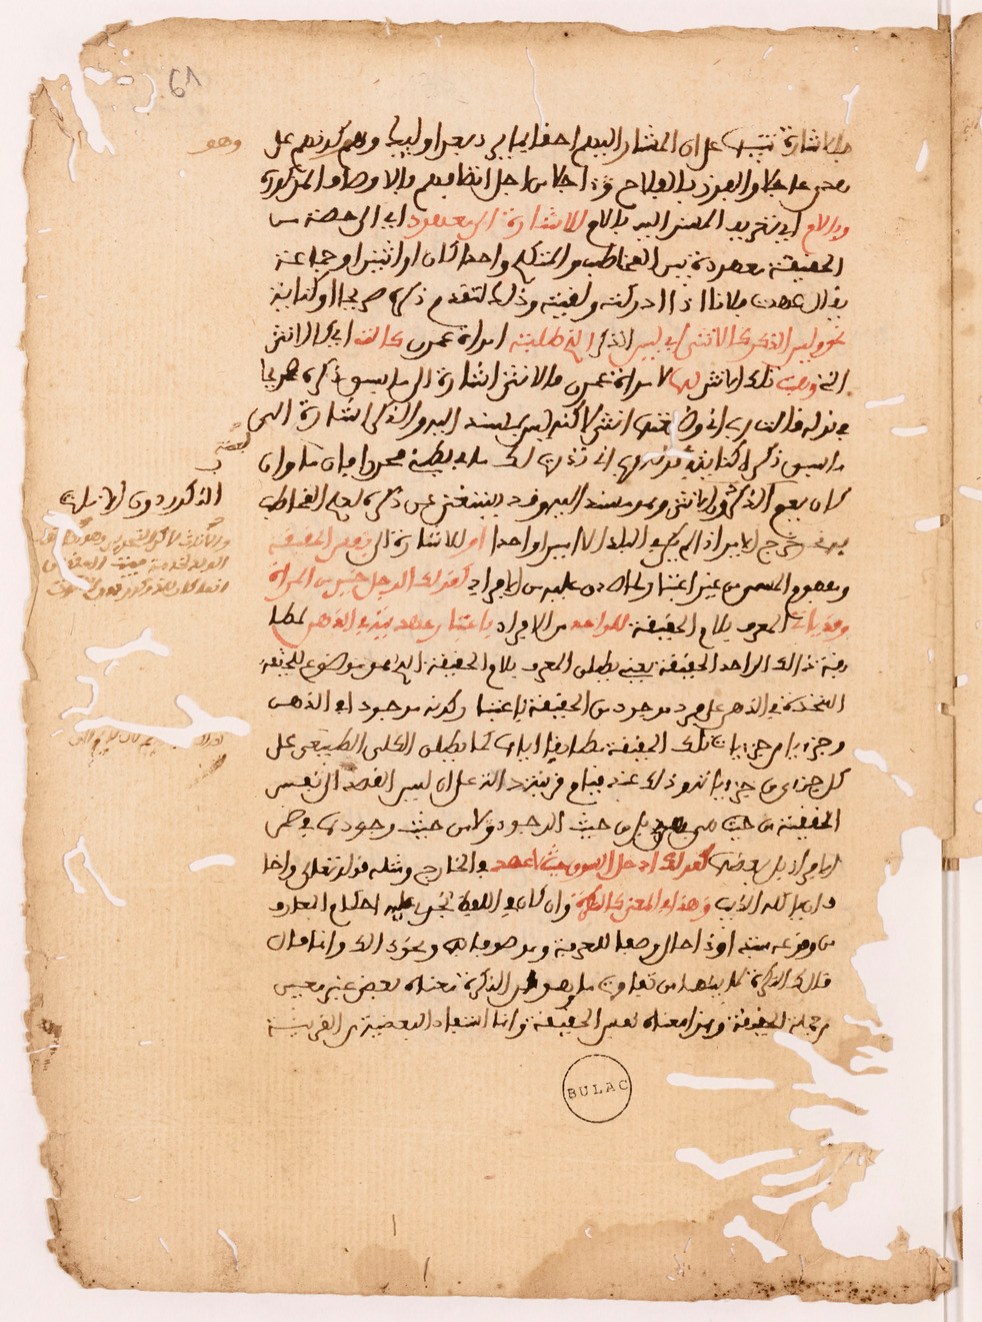 61
بالاشارة تنبيها على ان المشار اليهم احقا بما يرد بعد اولئك وهو كونهم على وهو
هدى عاجلا والفوز بالفلاح اجلا من اجل اتصافهم بالاوصاف المذكورة
وباللام اي تعريف المسند اليه باللام للاشارة الى معهود اي الى حصة من
الحقيقة معهودة بين المخاطب والمتكلم واحدا كان او اثنين او جماعة
يقال عهدت فلانا اذا ادركته ولقيته وذلك لتقدم ذكره صريحا او كناية
نحو وليس الذكر كالانثى اي ليس الذكر الذي طلبت امراة عمران كالتي اي كالانثى
التي وهبت تلك الانثى لها لامراة عمران فالانثى اشارة الى ما سبق ذكره صريحا
في قوله قالت رب اني وضعتها انثى لكنه ليس بمسند اليه والذكر اشارة الى
ما سبق ذكره كناية في قوله رب اني نذرت لك ما في بطني محررا فان ما وان
كان يعم الذكور والاناث
الذكور دون الاناث
وهو مسند اليه وقد يستغنى عن ذكره لعلم المخاطب
به نحو خرج الامير اذا لم يكن في البلد الا امير واحد او للاشارة الى نفس الحقيقة
ومفهوم المسمى من غير اعتبار لما صدق عليه من الافراد كقولك الرجل خير من المراة
وقد ياتي المعرف بلام الحقيقة للواحد من الافراد باعتبار عهديته في الذهن لمطا
بقة ذلك الواحد الحقيقة يعني يطلق المعرف بلام الحقيقة الذي هو موضوع للحقيقة
المتحدة في الذهن على فرد موجود من الحقيقة باعتبار كونه موجودا في الذهن
وجزئيا من جزئيات تلك الحقيقة مطابقا اياها كما يطلق الكلي الطبيعي على
كل جزئي من جزئياته وذلك عند قيام قرينة دالة على ان ليس القصد الى نفس
الحقيقة من حيث هي هي بل من حيث الوجود ولا من حيث وجودها في ضمن
الافراد بل بعضها كقولك ادخل السوق حيث لا عهد في الخارج ومثله قوله تعالى واخا
ف ان ياكله الذئب وهذا في المعنى كالنكرة وان كان في اللفظ تجري عليه احكام المعارف
من وقوعه مبتدا وذا حال ووصفا للمعرفة وموصوفا بها ونحو ذلك وانما قال
كالنكرة لما بينهما من تفاوت ما وهو ان النكرة معناه بعض غير معين
من جملة الحقيقة وهذا معناه نفس الحقيقة وانما تستفاد البعضية من القرينة
BULAC